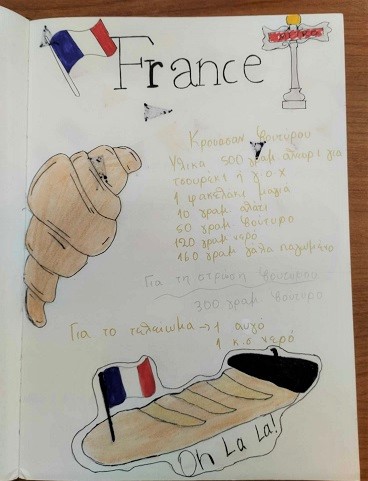 France
Κρουασάν βουτύρου
Υλικα 500 γραμ. αλευρι για
τσουρέκι ή γ.ο.χ
1 φακελακι μαγιά
10 γραμ. αλάτι
50 γραμ βούτυρο
120 γραμ νερό
160 γραμ γάλα παγωμένο
Για τη στρώση βουτύρου
300 γραμ βουτυρο
Για το τελείωμα → 1 αυγό
1 κ.σ νερό
Oh La La!